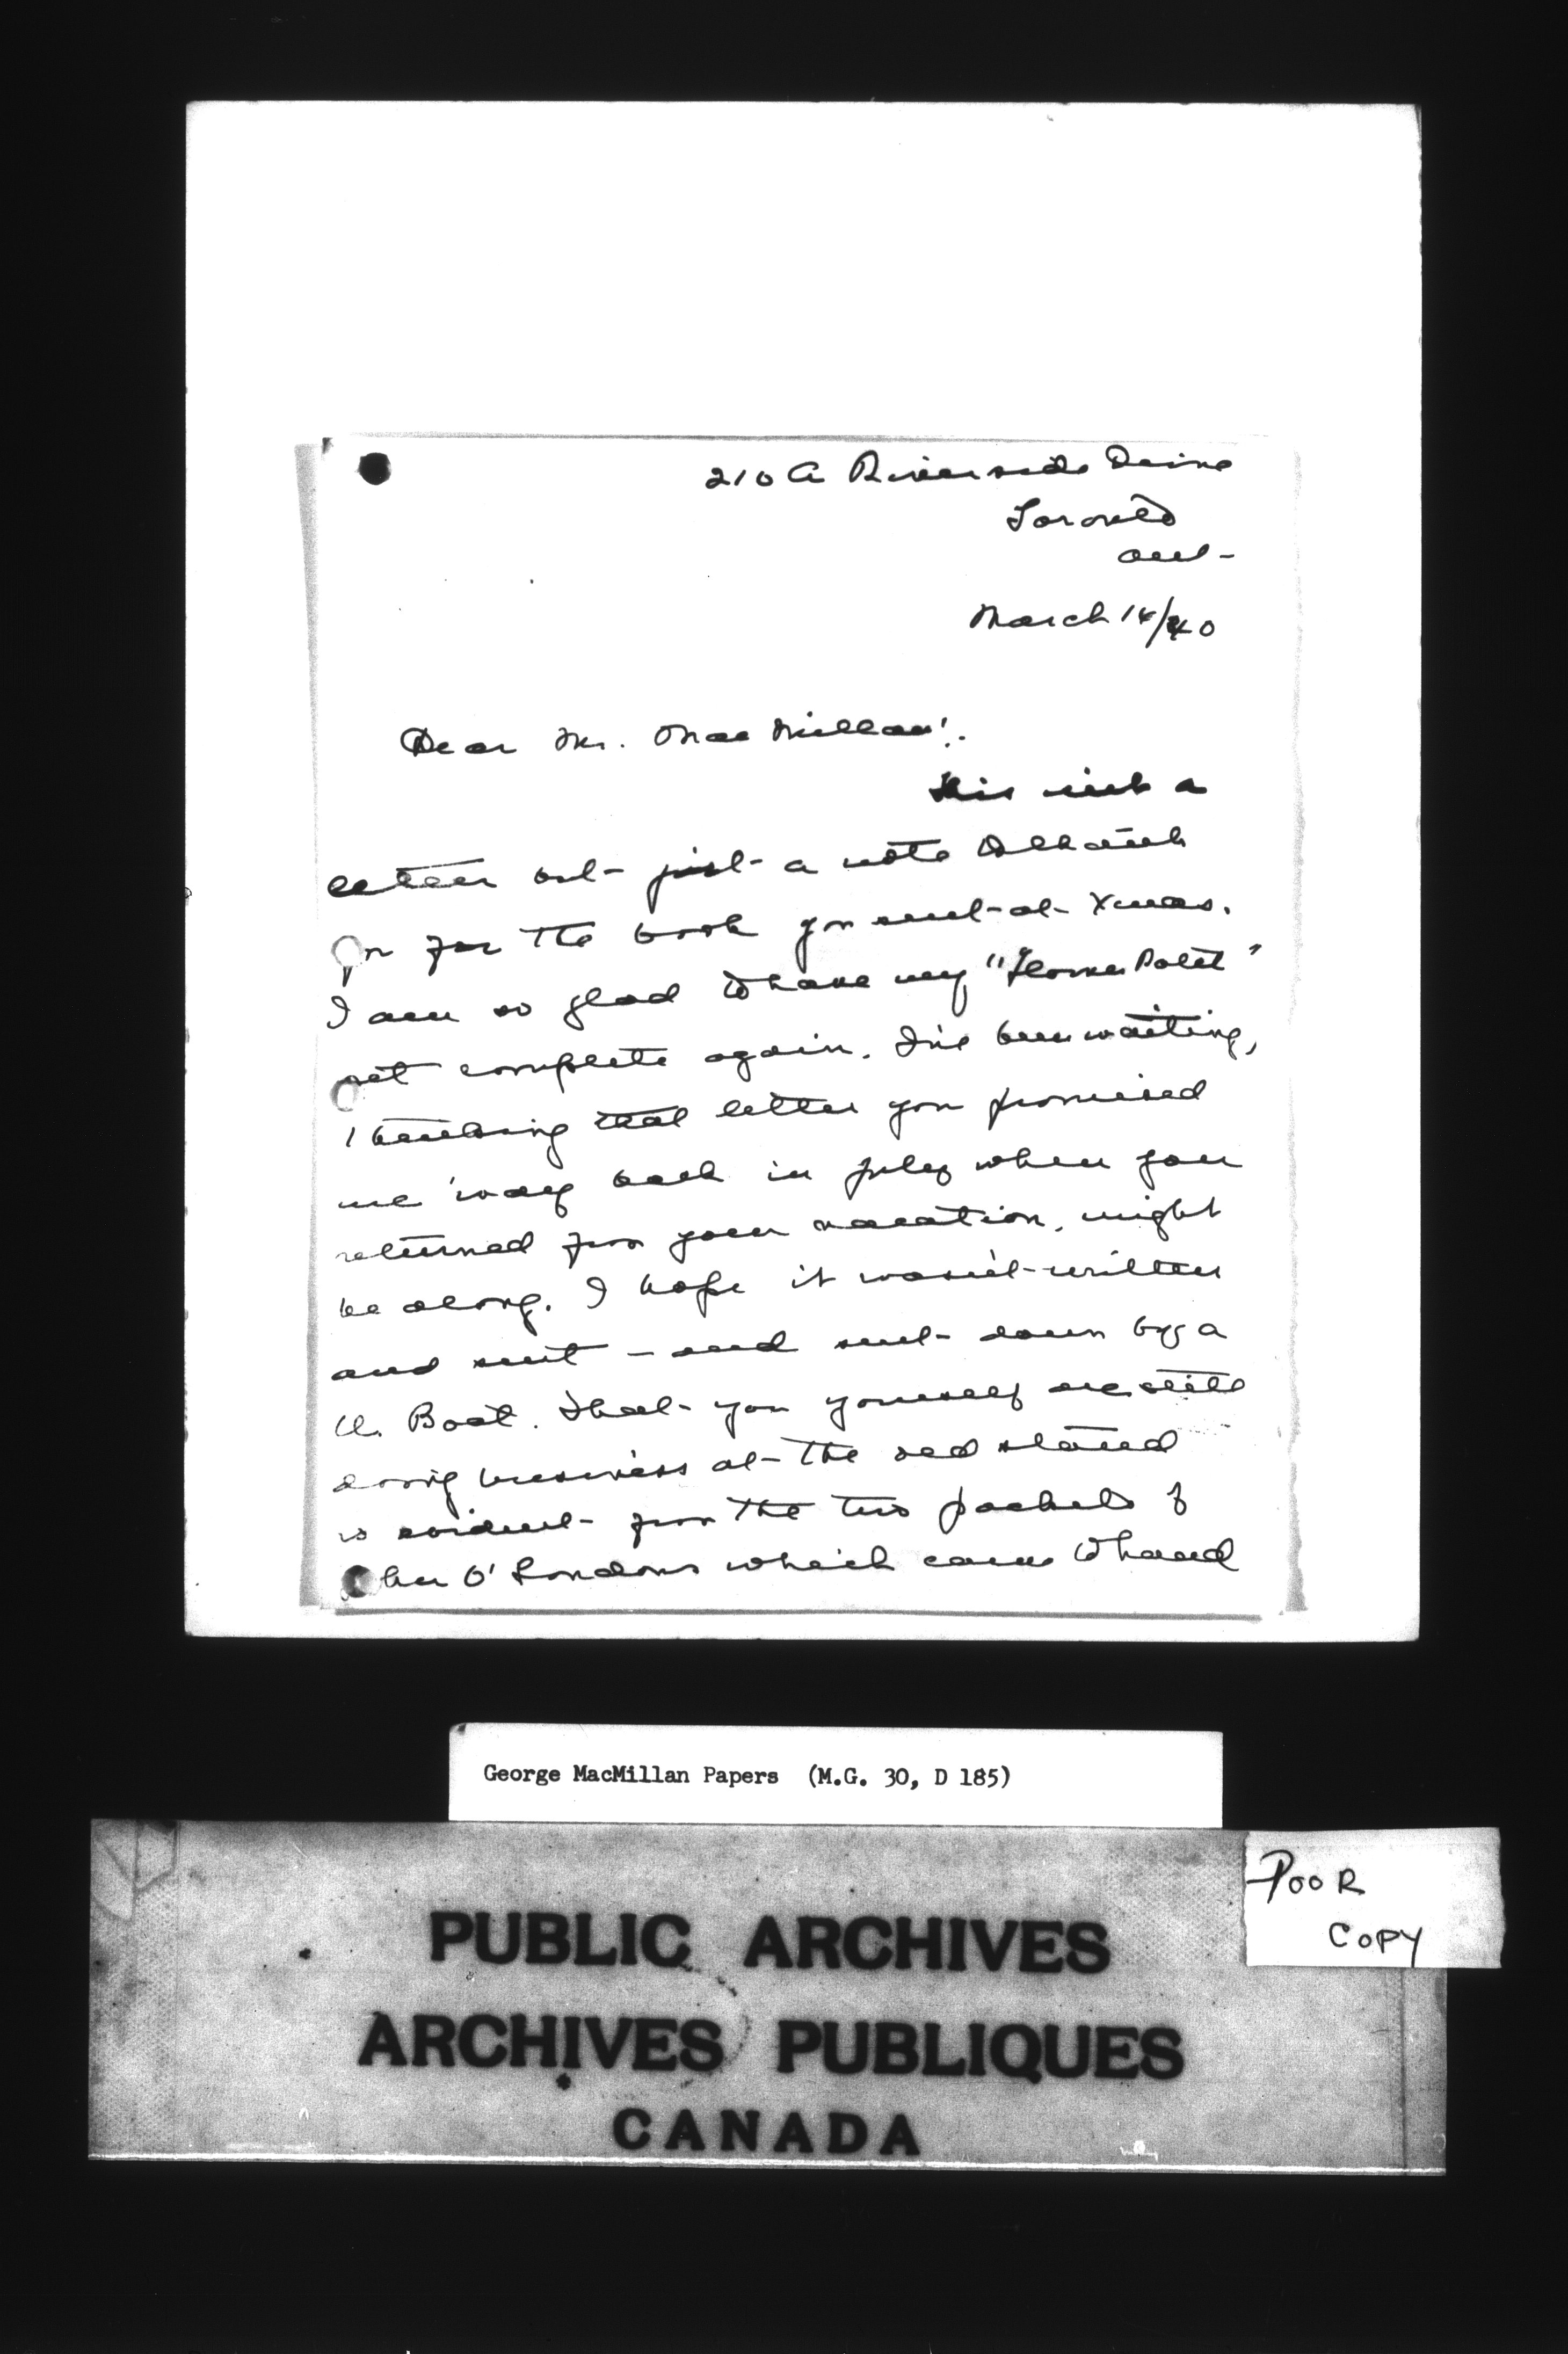 210 A Riverside Drive
Toronto
Ont-
March 14/40
Dear Mr. MacMillan:.
This isn't a
letter but just a note to thank
you for the book you sent at Xmas.
I am so glad to have my "Flower Patch"
set complete again. I've been waiting,
thinking that letter you promised
me 'way back in July when you
returned from your vacation, might
be along. I hope it wasn't written
and sent - and sunk down by a
U. Boat. That you yourself are still
doing business at the old stand
is evident from the two packets of
John O' Londons which came to hand
George MacMillan Papers (M.G. 30, D 185)
POOR
COPY
PUBLIC ARCHIVES
ARCHIVES PUBLIQUES
CANADA